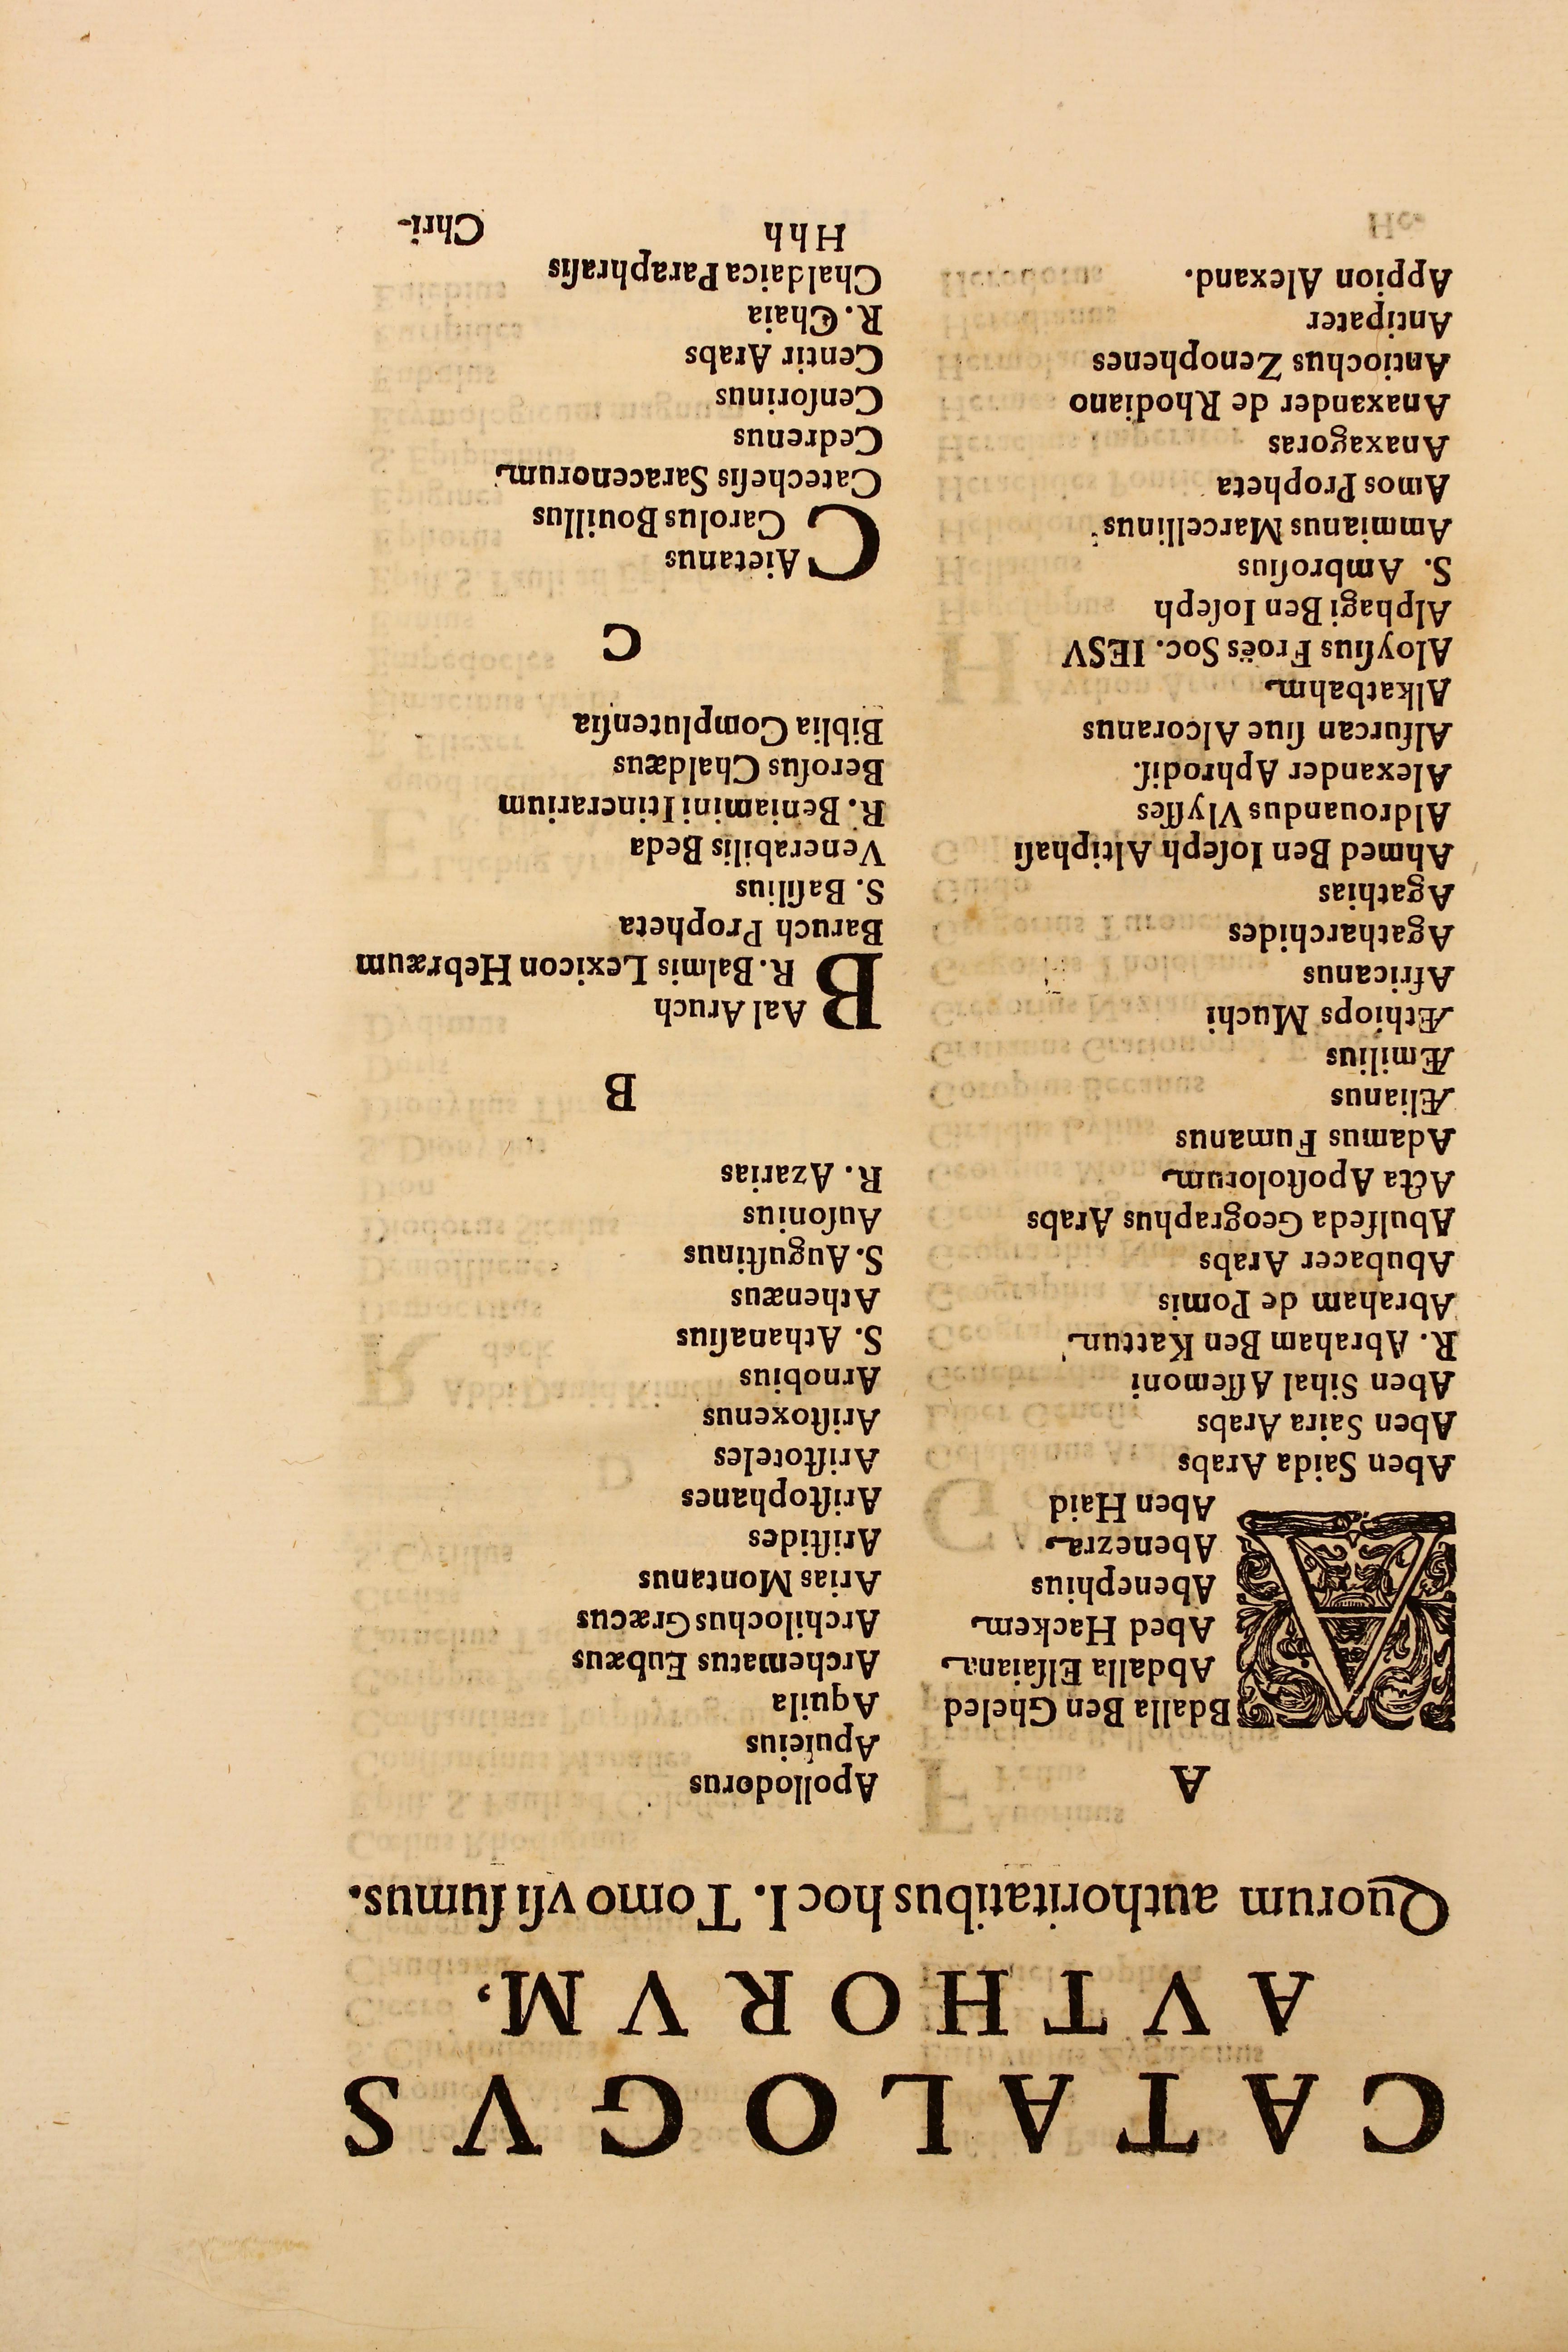 CATALOGVS
AVTHORVM,
Quorum authoritatibus hoc I. Tomo vſi ſumus.
A
ABdalla Ben Gheled
Abdalla Elſaiana
Abed Hackem
Abenephius
Abenezra
Aben Haid
Aben Saida Arabs
Aben Saira Arabs
Aben Sihal Aſſemoni
R. Abraham Ben Kattun
Abraham de Pomis
Abubacer Arabs
Abulfeda Geographus Arabs
Acta Apoſtolorum
Adamus Fumanus
Ælianus
Æmilius
Æthiops Muchi
Africanus
Agatharchides
Agathias
Ahmed Ben Ioſeph Altiphaſi
Aldrouandus Vlyſſes
Alexander Aphrodiſ.
Alfurcan ſiue Alcoranus
Alkatbahm
Aloyſius Froës Soc. IESV
Alphagi Ben Ioſeph
S. Ambroſius
Ammianus Marcellinus
Amos Propheta
Anaxagoras
Anaxander de Rhodiano
Antiochus Zenophenes
Antipater
Appion Alexand.
Apollodorus
Apuleius
Aquila
Archematus Eubæus
Archilochus Græcus
Arias Montanus
Ariſtides
Ariſtophanes
Ariſtoteles
Ariſtoxenus
Arnobius
S. Athanaſius
Athenæus
S. Auguſtinus
Auſonius
R. Azarias
B
BAal Aruch
R. Balmis Lexicon Hebræum
Baruch Propheta
S. Baſilius
Venerabilis Beda
R. Beniamini Itinerarium
Beroſus Chaldæus
Biblia Complutenſia
C
CAietanus
Carolus Bouillus
Catecheſis Saracenorum
Cedrenus
Cenſorinus
Centir Arabs
R. Chaia
Chaldaica Paraphraſis
Hhh
Chri-